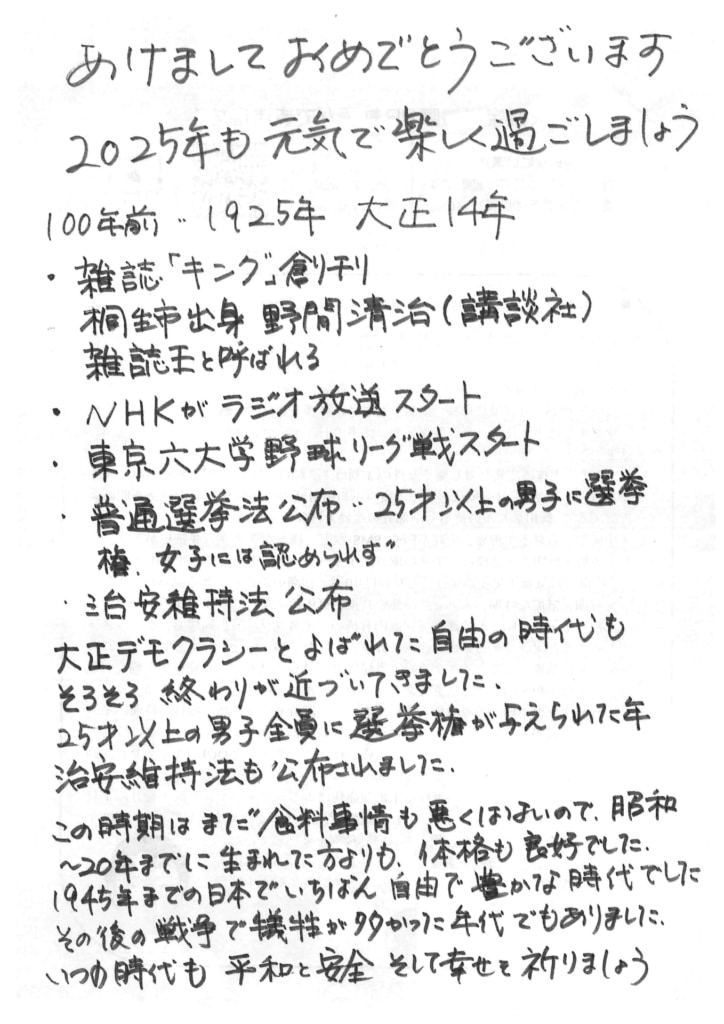 あけましておめでとうございます
2025年も元気で楽しく過ごしましょう
100年前‥1925年 大正14年
・雑誌「キング」創刊
桐生市出身 野間清治(講談社)
雑誌王と呼ばれる
・NHKがラジオ放送スタート
・東京六大学野球リーグ戦スタート
・普通選挙法公布‥25才以上の男子に選挙
権、女子には認められず
・治安維持法公布
大正デモクラシーとよばれた自由の時代も
そろそろ終わりが近づいてきました、
25才以上の男子全員に選挙権が与えられた年
治安維持法も公布されました、
この時期はまだ食料事情も悪くはないので、昭和
～20年までに生まれた方よりも、体格も良好でした、
1945年までの日本でいちばん自由で豊かな時代でした
その後の戦争で犠牲が多かった年代でもありました、
いつの時代も平和と安全そして幸せを祈りましょう